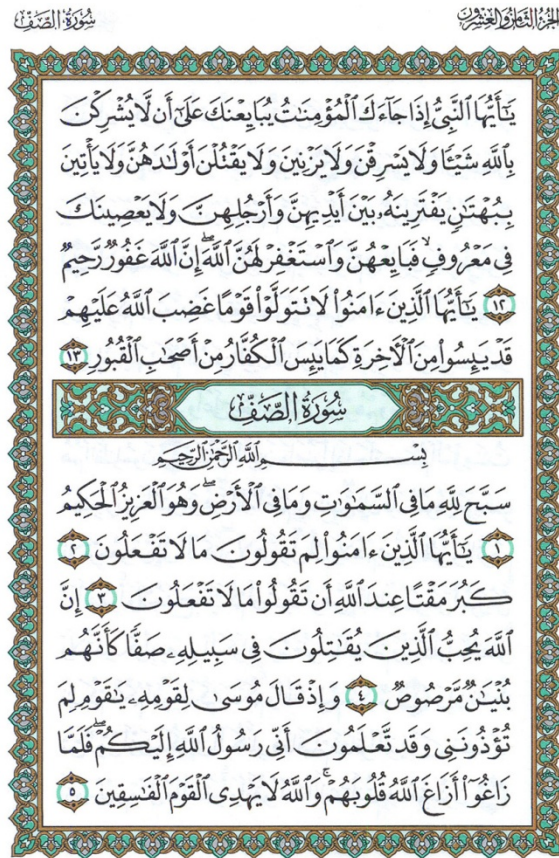 الجزء الثامن والعشرون
سُورَةُ الصَّفِّ
يَٰٓأَيُّهَا ٱلنَّبِىُّ إِذَا جَآءَكَ ٱلْمُؤْمِنَٰتُ يُبَايِعْنَكَ عَلَىٰٓ أَن لَّا يُشْرِكْنَ
بِٱللَّهِ شَيْـًٔا وَلَا يَسْرِقْنَ وَلَا يَزْنِينَ وَلَا يَقْتُلْنَ أَوْلَٰدَهُنَّ وَلَا يَأْتِينَ
بِبُهْتَٰنٍ يَفْتَرِينَهُۥ بَيْنَ أَيْدِيهِنَّ وَأَرْجُلِهِنَّ وَلَا يَعْصِينَكَ
فِى مَعْرُوفٍ ۙ فَبَايِعْهُنَّ وَٱسْتَغْفِرْ لَهُنَّ ٱللَّهَ ۖ إِنَّ ٱللَّهَ غَفُورٌ رَّحِيمٌ
١٢ يَٰٓأَيُّهَا ٱلَّذِينَ ءَامَنُوا۟ لَا تَتَوَلَّوْا۟ قَوْمًا غَضِبَ ٱللَّهُ عَلَيْهِمْ
قَدْ يَئِسُوا۟ مِنَ ٱلْـَٔاخِرَةِ كَمَا يَئِسَ ٱلْكُفَّارُ مِنْ أَصْحَٰبِ ٱلْقُبُورِ ١٣
سُورَةُ الصَّفِّ
بِسْمِ ٱللَّهِ ٱلرَّحْمَٰنِ ٱلرَّحِيمِ
سَبَّحَ لِلَّهِ مَا فِى ٱلسَّمَٰوَٰتِ وَمَا فِى ٱلْأَرْضِ ۖ وَهُوَ ٱلْعَزِيزُ ٱلْحَكِيمُ
١ يَٰٓأَيُّهَا ٱلَّذِينَ ءَامَنُوا۟ لِمَ تَقُولُونَ مَا لَا تَفْعَلُونَ ٢
كَبُرَ مَقْتًا عِندَ ٱللَّهِ أَن تَقُولُوا۟ مَا لَا تَفْعَلُونَ ٣ إِنَّ
ٱللَّهَ يُحِبُّ ٱلَّذِينَ يُقَٰتِلُونَ فِى سَبِيلِهِۦ صَفًّا كَأَنَّهُم
بُنْيَٰنٌ مَّرْصُوصٌ ٤ وَإِذْ قَالَ مُوسَىٰ لِقَوْمِهِۦ يَٰقَوْمِ لِمَ
تُؤْذُونَنِى وَقَد تَّعْلَمُونَ أَنِّى رَسُولُ ٱللَّهِ إِلَيْكُمْ ۖ فَلَمَّا
زَاغُوٓا۟ أَزَاغَ ٱللَّهُ قُلُوبَهُمْ ۚ وَٱللَّهُ لَا يَهْدِى ٱلْقَوْمَ ٱلْفَٰسِقِينَ ٥